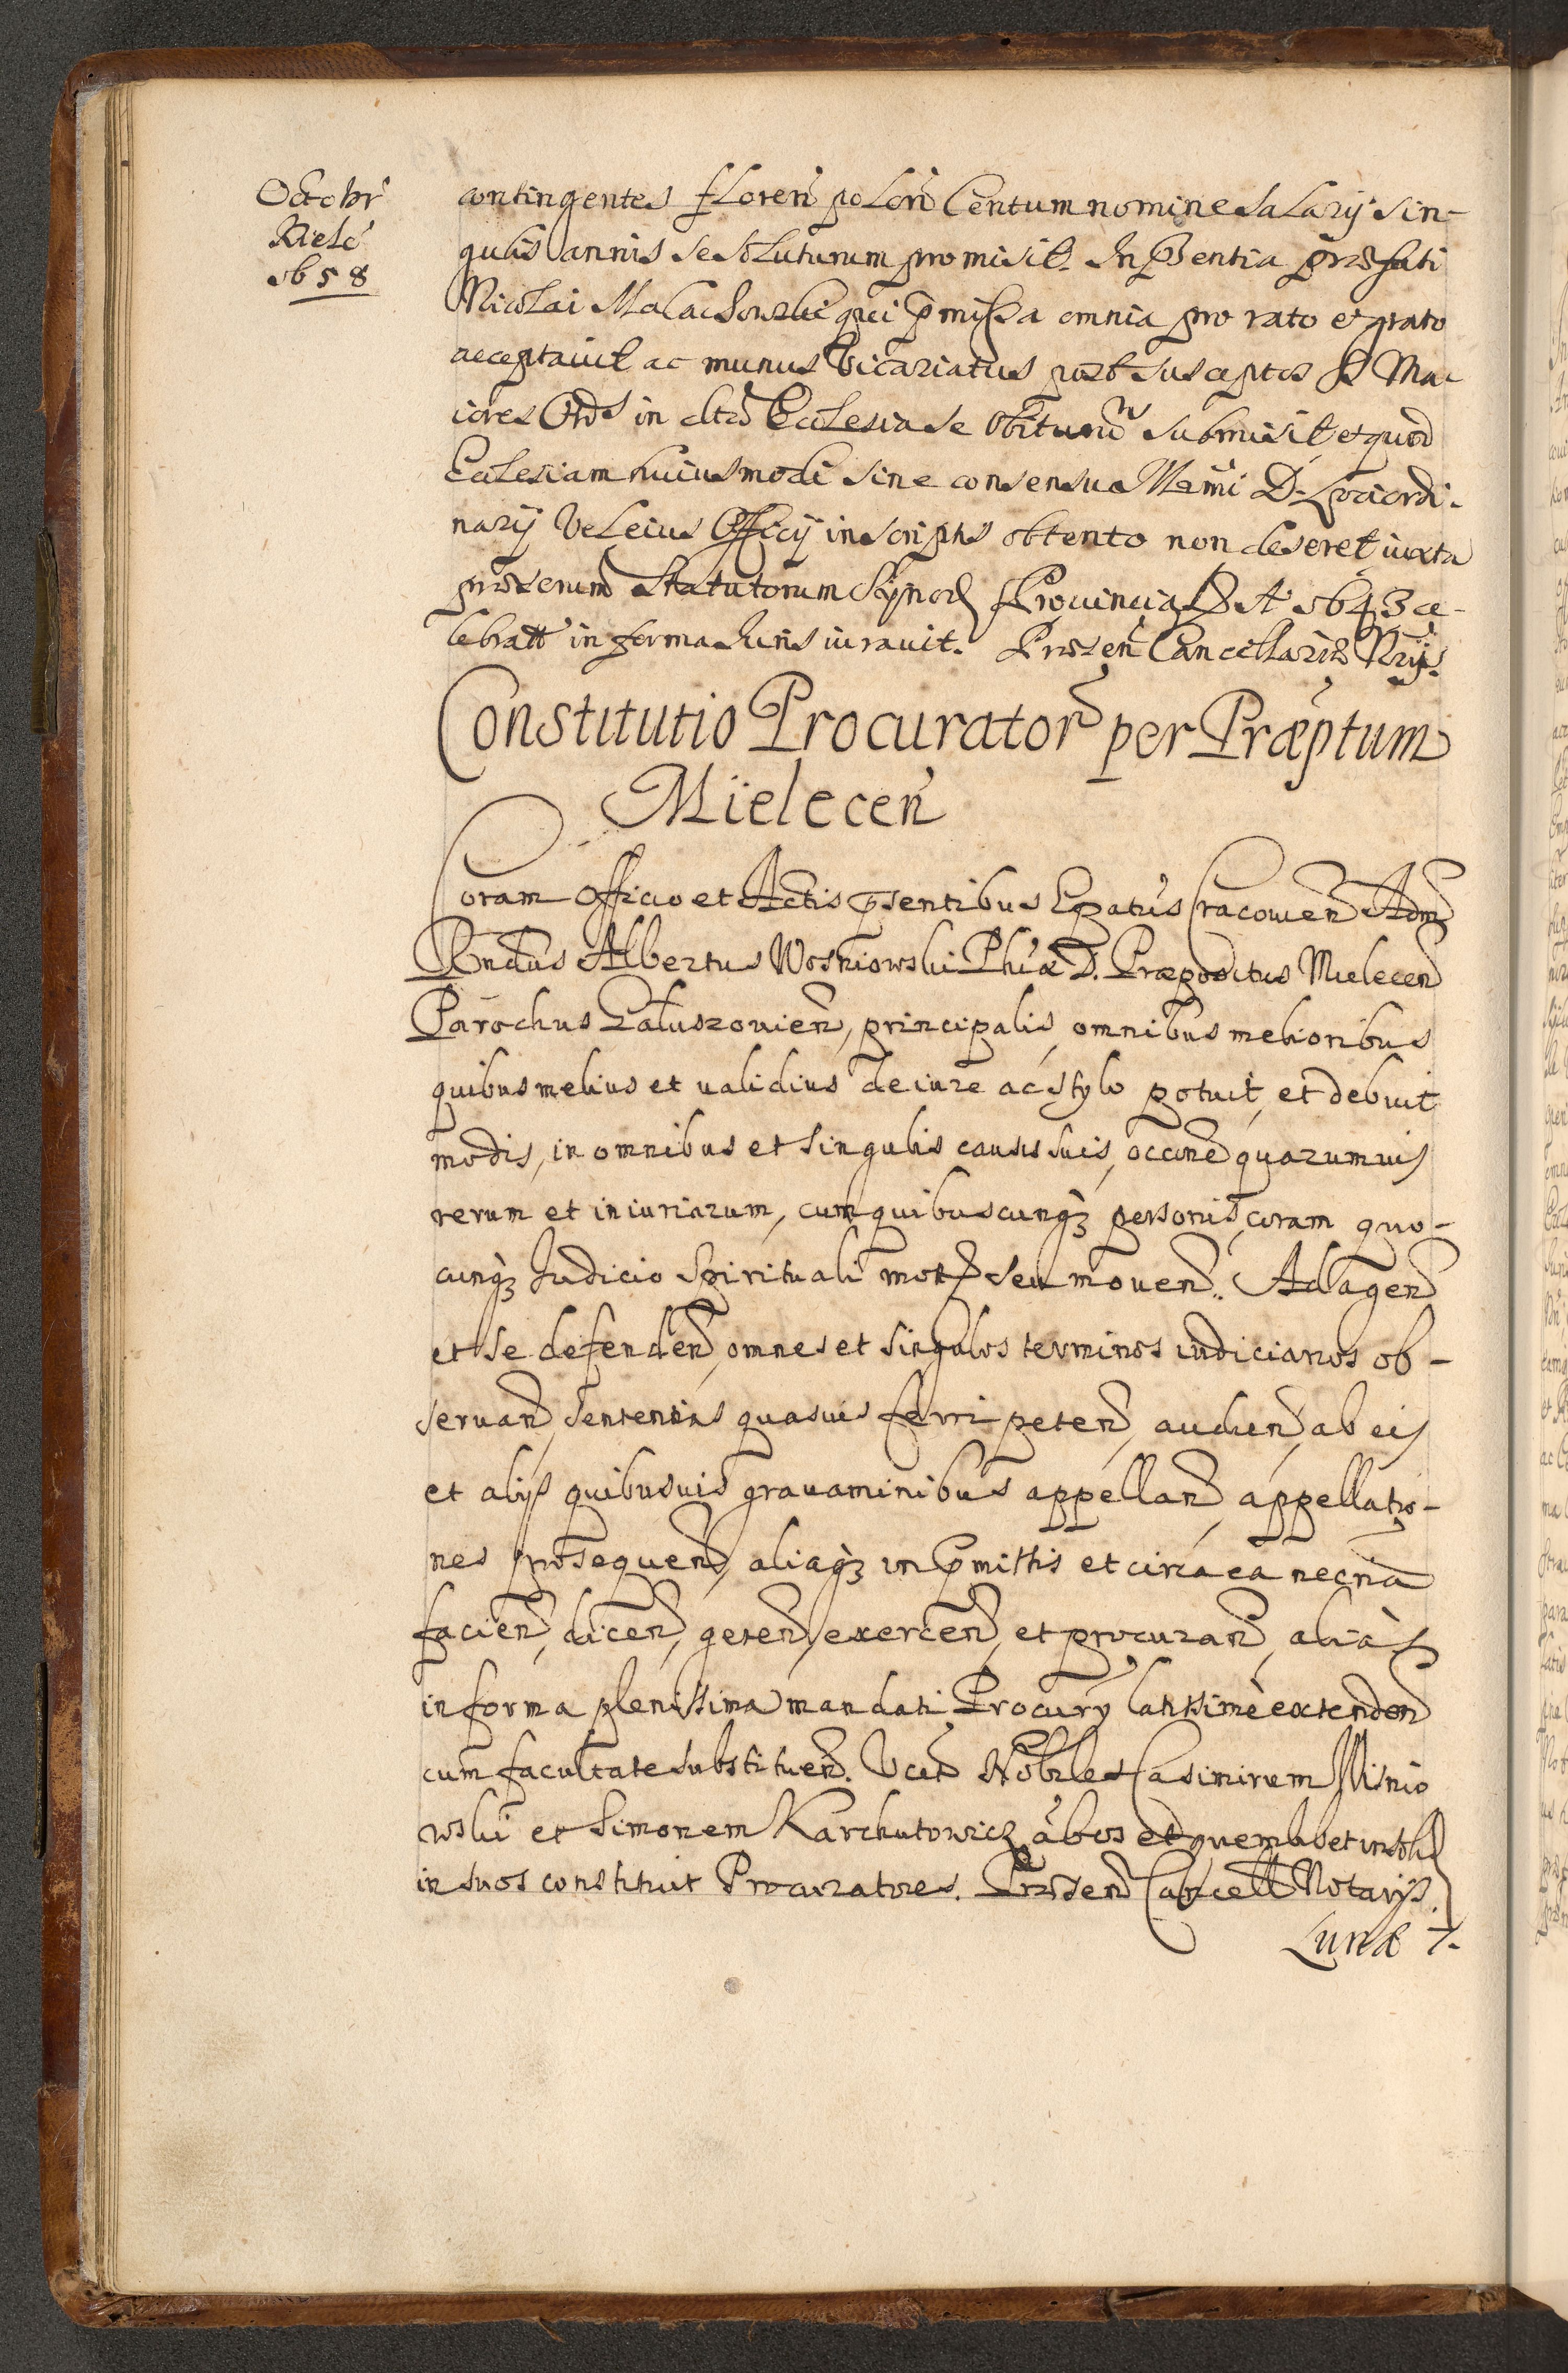 Octobr
Kielc
1658
contingentes Floren polon Centum nomine Salarij sin-
gulis annis se soluturum promisit. In Pntia præfati
Nicolai Malachowski qui pmissa omnia pro rato et grato
acceptauit ac munus Vicariatus post susceptos SS Ma-
iores Ords in dta Ecclesia se obiturum submisit et quod
Ecclesiam huiusmodi sine consensu Illmi D. Loci ordi-
narij Vel eius Officij in scriptis obtento non deseret iuxta
præscrum Statutorum Synod Prouincia A 1643 ce-
lebratt in forma Juris iurauit. Præsen Cancellariæ Nrijs.
Constitutio Procurator per Præptum
Mielecen
Coram Officio et Actis psentibus Epatus Cracouien Adm
Rndus Albertus Wosniowski Phiæ D. Præpositus Mielecen
Parochus Załuszouien, principalis, omnibus melioribus
quibus melius et validius de iure ac stylo potuit, et debuit
modis, in omnibus et singulis causis suis, occone quarumuis
rerum et iniuriarum, cum quibuscunq personis, coram quo-
cunq Judicio Spirituali mot seu mouen. Ad agen
et se defenden, omnes et singulos terminos iudiciarios ob-
seruan, sententias quasuis ferri peten, audien, ab eis
et alijs quibusuis grauaminibus appellan, appellatio-
nes prosequen, aliaq in pmissis et circa ea necria
facien, dicen, geren, exercen, et procuran, alias
in forma plenissima mandati Procury latissime extenden
cum facultate substituen. Vcet Nobiles Casimirum Misnio
wski et Simonem Karchutowicz ambos et quemlibet insolid
in suos constituit Procuratores. Præsen Cancell Notarijs.
Lunæ 7.